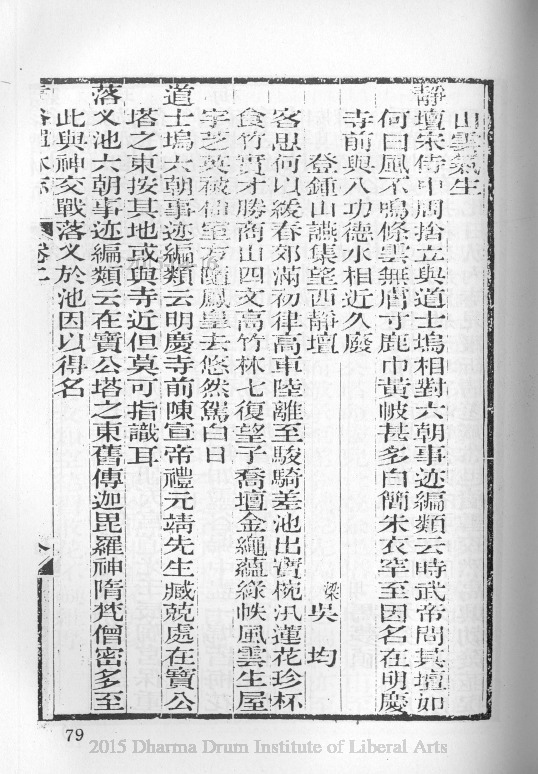 山雲氣生
靜壇宋侍中周捨立與道士塢相對六朝事迹編類云時武帝問其壇如
何曰風不鳴條雲無膚寸鹿巾黃帔甚多白簡朱衣罕至因名在明慶
寺前與八功德水相近久廢
登鍾山讌集望西靜壇
梁吳均
客思何以緩春郊滿初律高車陸離至駿騎差池出寶椀汎蓮花珍杯
食竹實才勝商山四文高竹林七復望子喬壇金繩蘊綠帙風雲生屋
宇芝英被仙室方隨鳳皇去悠然駕白日
道士塢六朝事迹編類云明慶寺前陳宣帝禮元靖先生臧兢處在寶公
塔之東按其地或與寺近但莫可指識耳
落叉池六朝事迹編類云在寶公塔之東舊傳迦毘羅神隋梵僧密多至
此與神交戰落叉於池因以得名
卷二
79
2015 Dharma Drum Institute of Liberal Arts